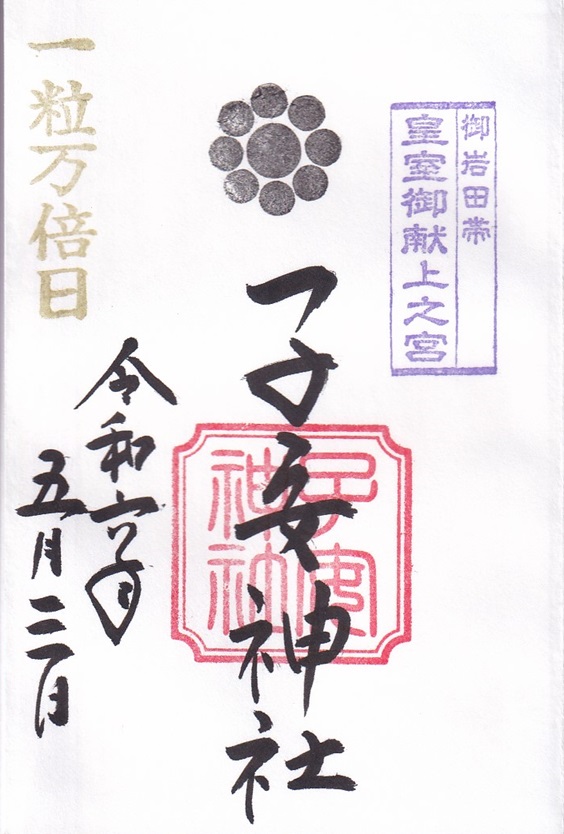 御岩田帯
皇室御献上之宮
子安神社
子安
神社
一粒万倍日
令和六年
五月三日